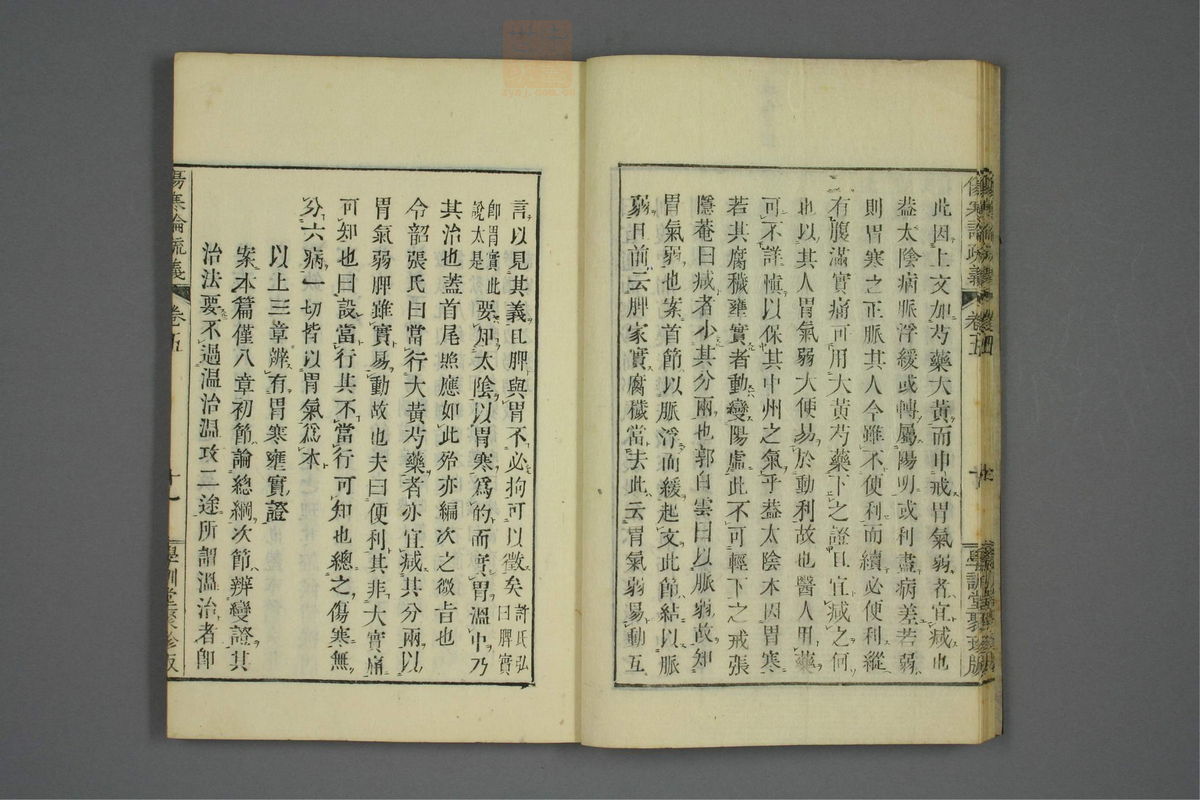 此因上文加芍藥大黃而申戒胃氣弱者宜減也
蓋太陰病脈浮緩或轉屬陽明或利盡病差若弱
則胃寒之正脈其人今雖不便利而續必便利縱
有腹滿實痛可用大黃芍藥下之證且宜減之何
也以其人胃氣弱大便易於動利故也醫人用藥
可不詳愼以保其中州之氣乎蓋太陰本因胃寒
若其腐穢壅實者動變陽虛此不可輕下之戒張
隱菴曰減者少其分兩也郭白雲曰以脈弱故知
胃氣弱也案首節以脈浮而緩起文此節結以脈
弱且前云脾家實腐穢當去此云胃氣弱易動互
言以見其義且脾與胃不必拘可以徵矣許氏弘曰脾實
卽胃實此說太是要知太陰以胃寒爲的而實胃溫中乃
其治也蓋首尾照應如此殆亦編次之微旨也
令韶張氏曰當行大黃芍藥者亦宜減其分兩以
胃氣弱脾雖實易動故也夫曰便利其非大實痛
可知也曰設當行其不當行可知也總之傷寒無
分六病一切皆以胃氣爲本
以上三章辨有胃寒壅實證
案本篇僅八章初節論總綱次節辨變證其
治法要不過溫治溫攻二途所謂溫治者卽
傷寒論疏義
卷五
十一
學訓堂聚珍版